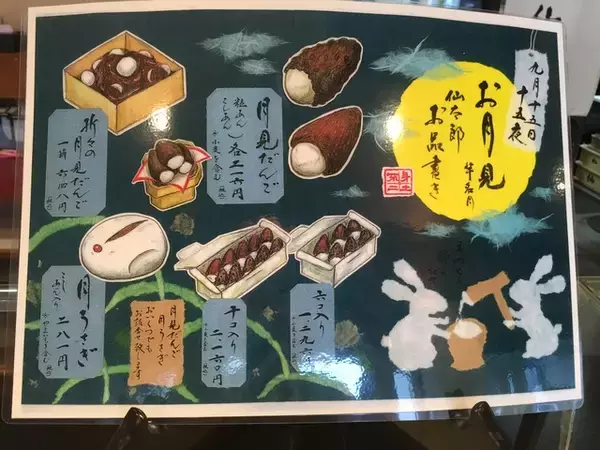 九月十五日
十五夜
お月見
芋名月
仙太郎
お品書き
月見だんご
粒あん
こしあん
各二一六円
折々の
月見だんご
一折 六四八円
月うさぎ
こしあん入り
二八一円
月見だんご
月うさぎ
おいくつでも
お詰合せ致します
十コ入り
二一六〇円
六コ入り
一二九六円